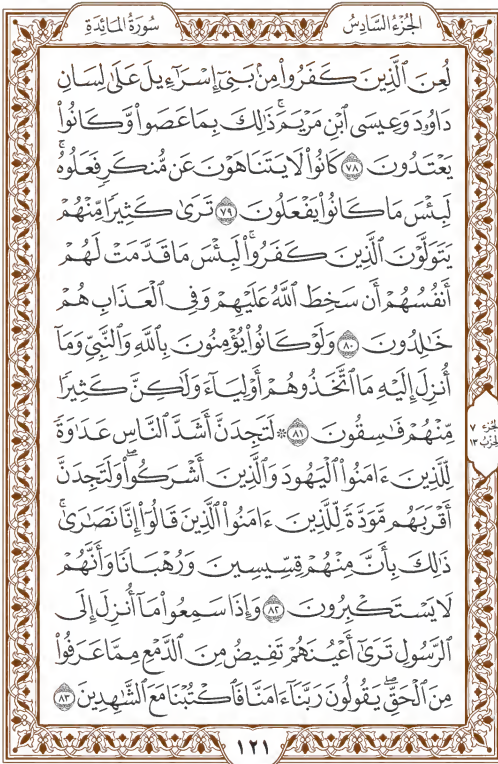 سُورَةُ المَائِدَةِ الجُزْءُ السَّادِسُ
لُعِنَ ٱلَّذِينَ كَفَرُواْ مِنۢ بَنِيٓ إِسْرَٰٓءِيلَ عَلَىٰ لِسَانِ
دَاوُۥدَ وَعِيسَى ٱبْنِ مَرْيَمَۚ ذَٰلِكَ بِمَا عَصَواْ وَّكَانُواْ
يَعْتَدُونَ ٧٨ كَانُواْ لَا يَتَنَاهَوْنَ عَن مُّنكَرٍ فَعَلُوهُۚ
لَبِئْسَ مَا كَانُواْ يَفْعَلُونَ ٧٩ تَرَىٰ كَثِيرًا مِّنْهُمْ
يَتَوَلَّوْنَ ٱلَّذِينَ كَفَرُواْۚ لَبِئْسَ مَا قَدَّمَتْ لَهُمْ
أَنفُسُهُمْ أَن سَخِطَ ٱللَّهُ عَلَيْهِمْ وَفِي ٱلْعَذَابِ هُمْ
خَٰلِدُونَ ٨٠ وَلَوْ كَانُواْ يُؤْمِنُونَ بِٱللَّهِ وَٱلنَّبِيِّ وَمَآ
أُنزِلَ إِلَيْهِ مَا ٱتَّخَذُوهُمْ أَوْلِيَآءَ وَلَٰكِنَّ كَثِيرًا
مِّنْهُمْ فَٰسِقُونَ ٨١ ۞ لَتَجِدَنَّ أَشَدَّ ٱلنَّاسِ عَدَٰوَةً
الجزء ٧
الحزب ١٣
لِّلَّذِينَ ءَامَنُواْ ٱلْيَهُودَ وَٱلَّذِينَ أَشْرَكُواْۖ وَلَتَجِدَنَّ
أَقْرَبَهُم مَّوَدَّةً لِّلَّذِينَ ءَامَنُواْ ٱلَّذِينَ قَالُوٓاْ إِنَّا نَصَٰرَىٰۚ
ذَٰلِكَ بِأَنَّ مِنْهُمْ قِسِّيسِينَ وَرُهْبَانًا وَأَنَّهُمْ
لَا يَسْتَكْبِرُونَ ٨٢ وَإِذَا سَمِعُواْ مَآ أُنزِلَ إِلَى
ٱلرَّسُولِ تَرَىٰٓ أَعْيُنَهُمْ تَفِيضُ مِنَ ٱلدَّمْعِ مِمَّا عَرَفُواْ
مِنَ ٱلْحَقِّۖ يَقُولُونَ رَبَّنَآ ءَامَنَّا فَٱكْتُبْنَا مَعَ ٱلشَّٰهِدِينَ ٨٣
١٢١